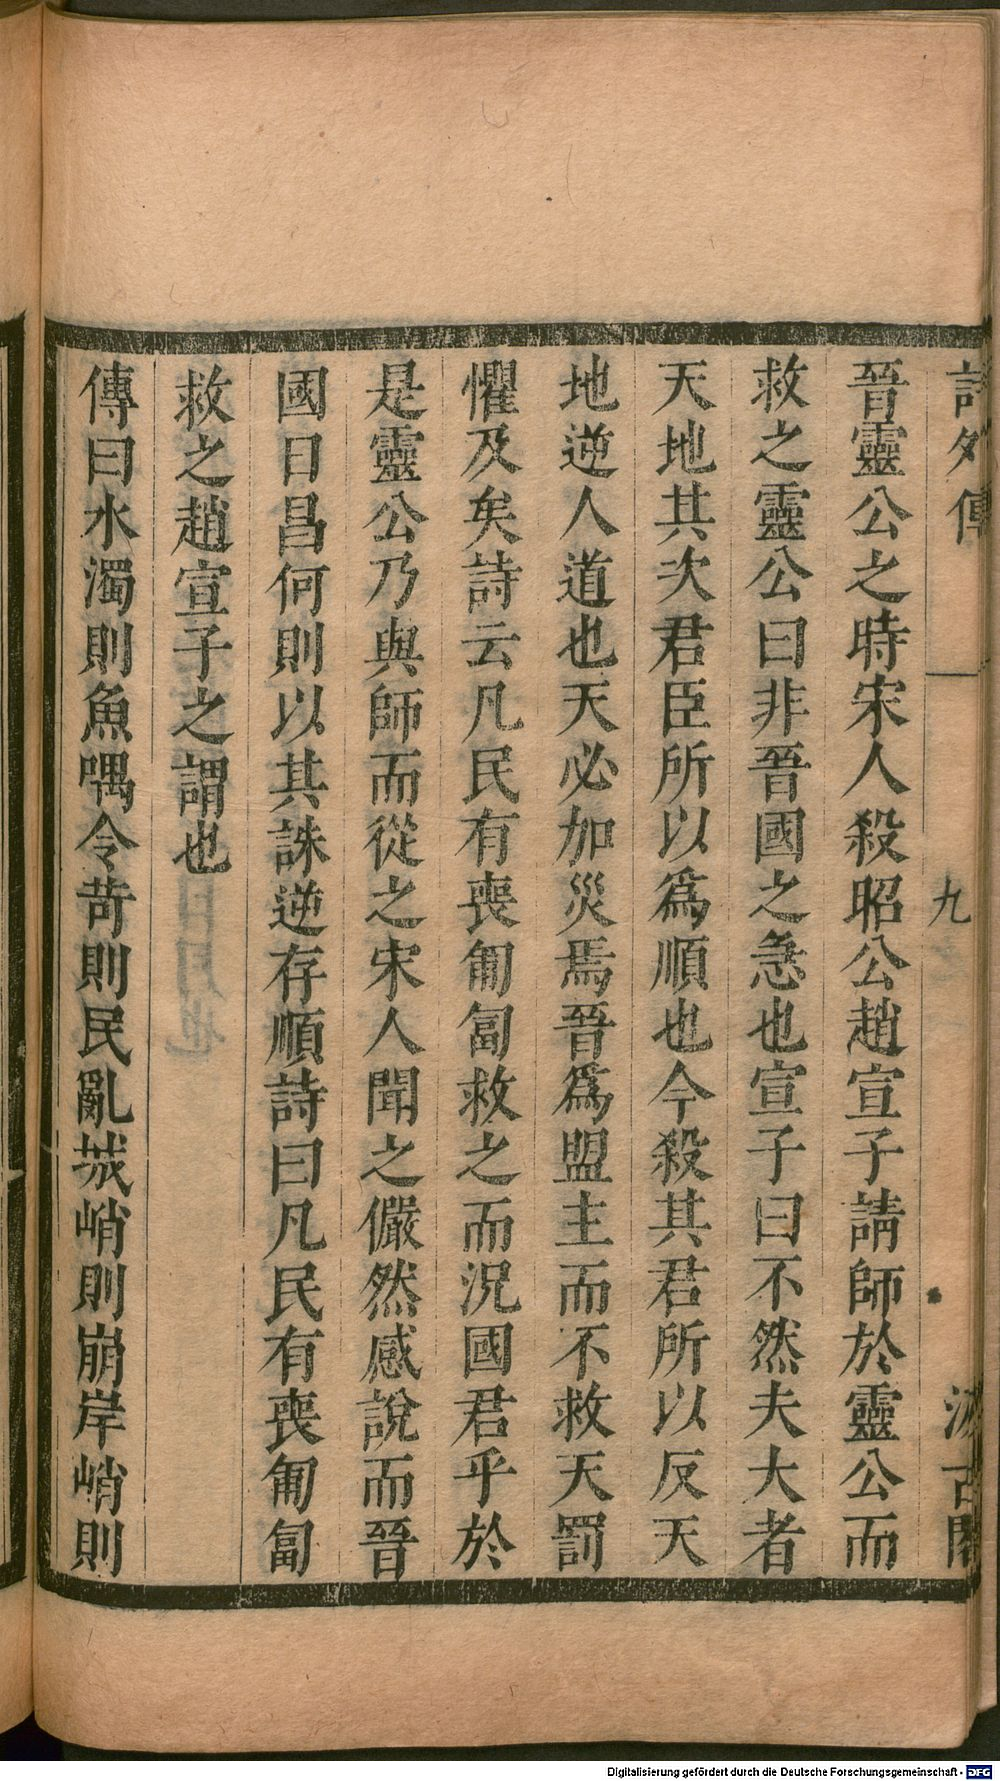 詩外傳 一 九 汲古閣
晉靈公之時宋人殺昭公趙宣子請師於靈公而
救之靈公曰非晉國之急也宣子曰不然夫大者
天地其次君臣所以爲順也今殺其君所以反天
地逆人道也天必加災焉晉爲盟主而不救天罰
懼及矣詩云凡民有喪匍匐救之而況國君乎於
是靈公乃與師而從之宋人聞之儼然感說而晉
國日昌何則以其誅逆存順詩曰凡民有喪匍匐
救之趙宣子之謂也
傳曰水濁則魚喁令苛則民亂城峭則崩岸峭則
Digitalisierung gefördert durch die Deutsche Forschungsgemeinschaft - DFG